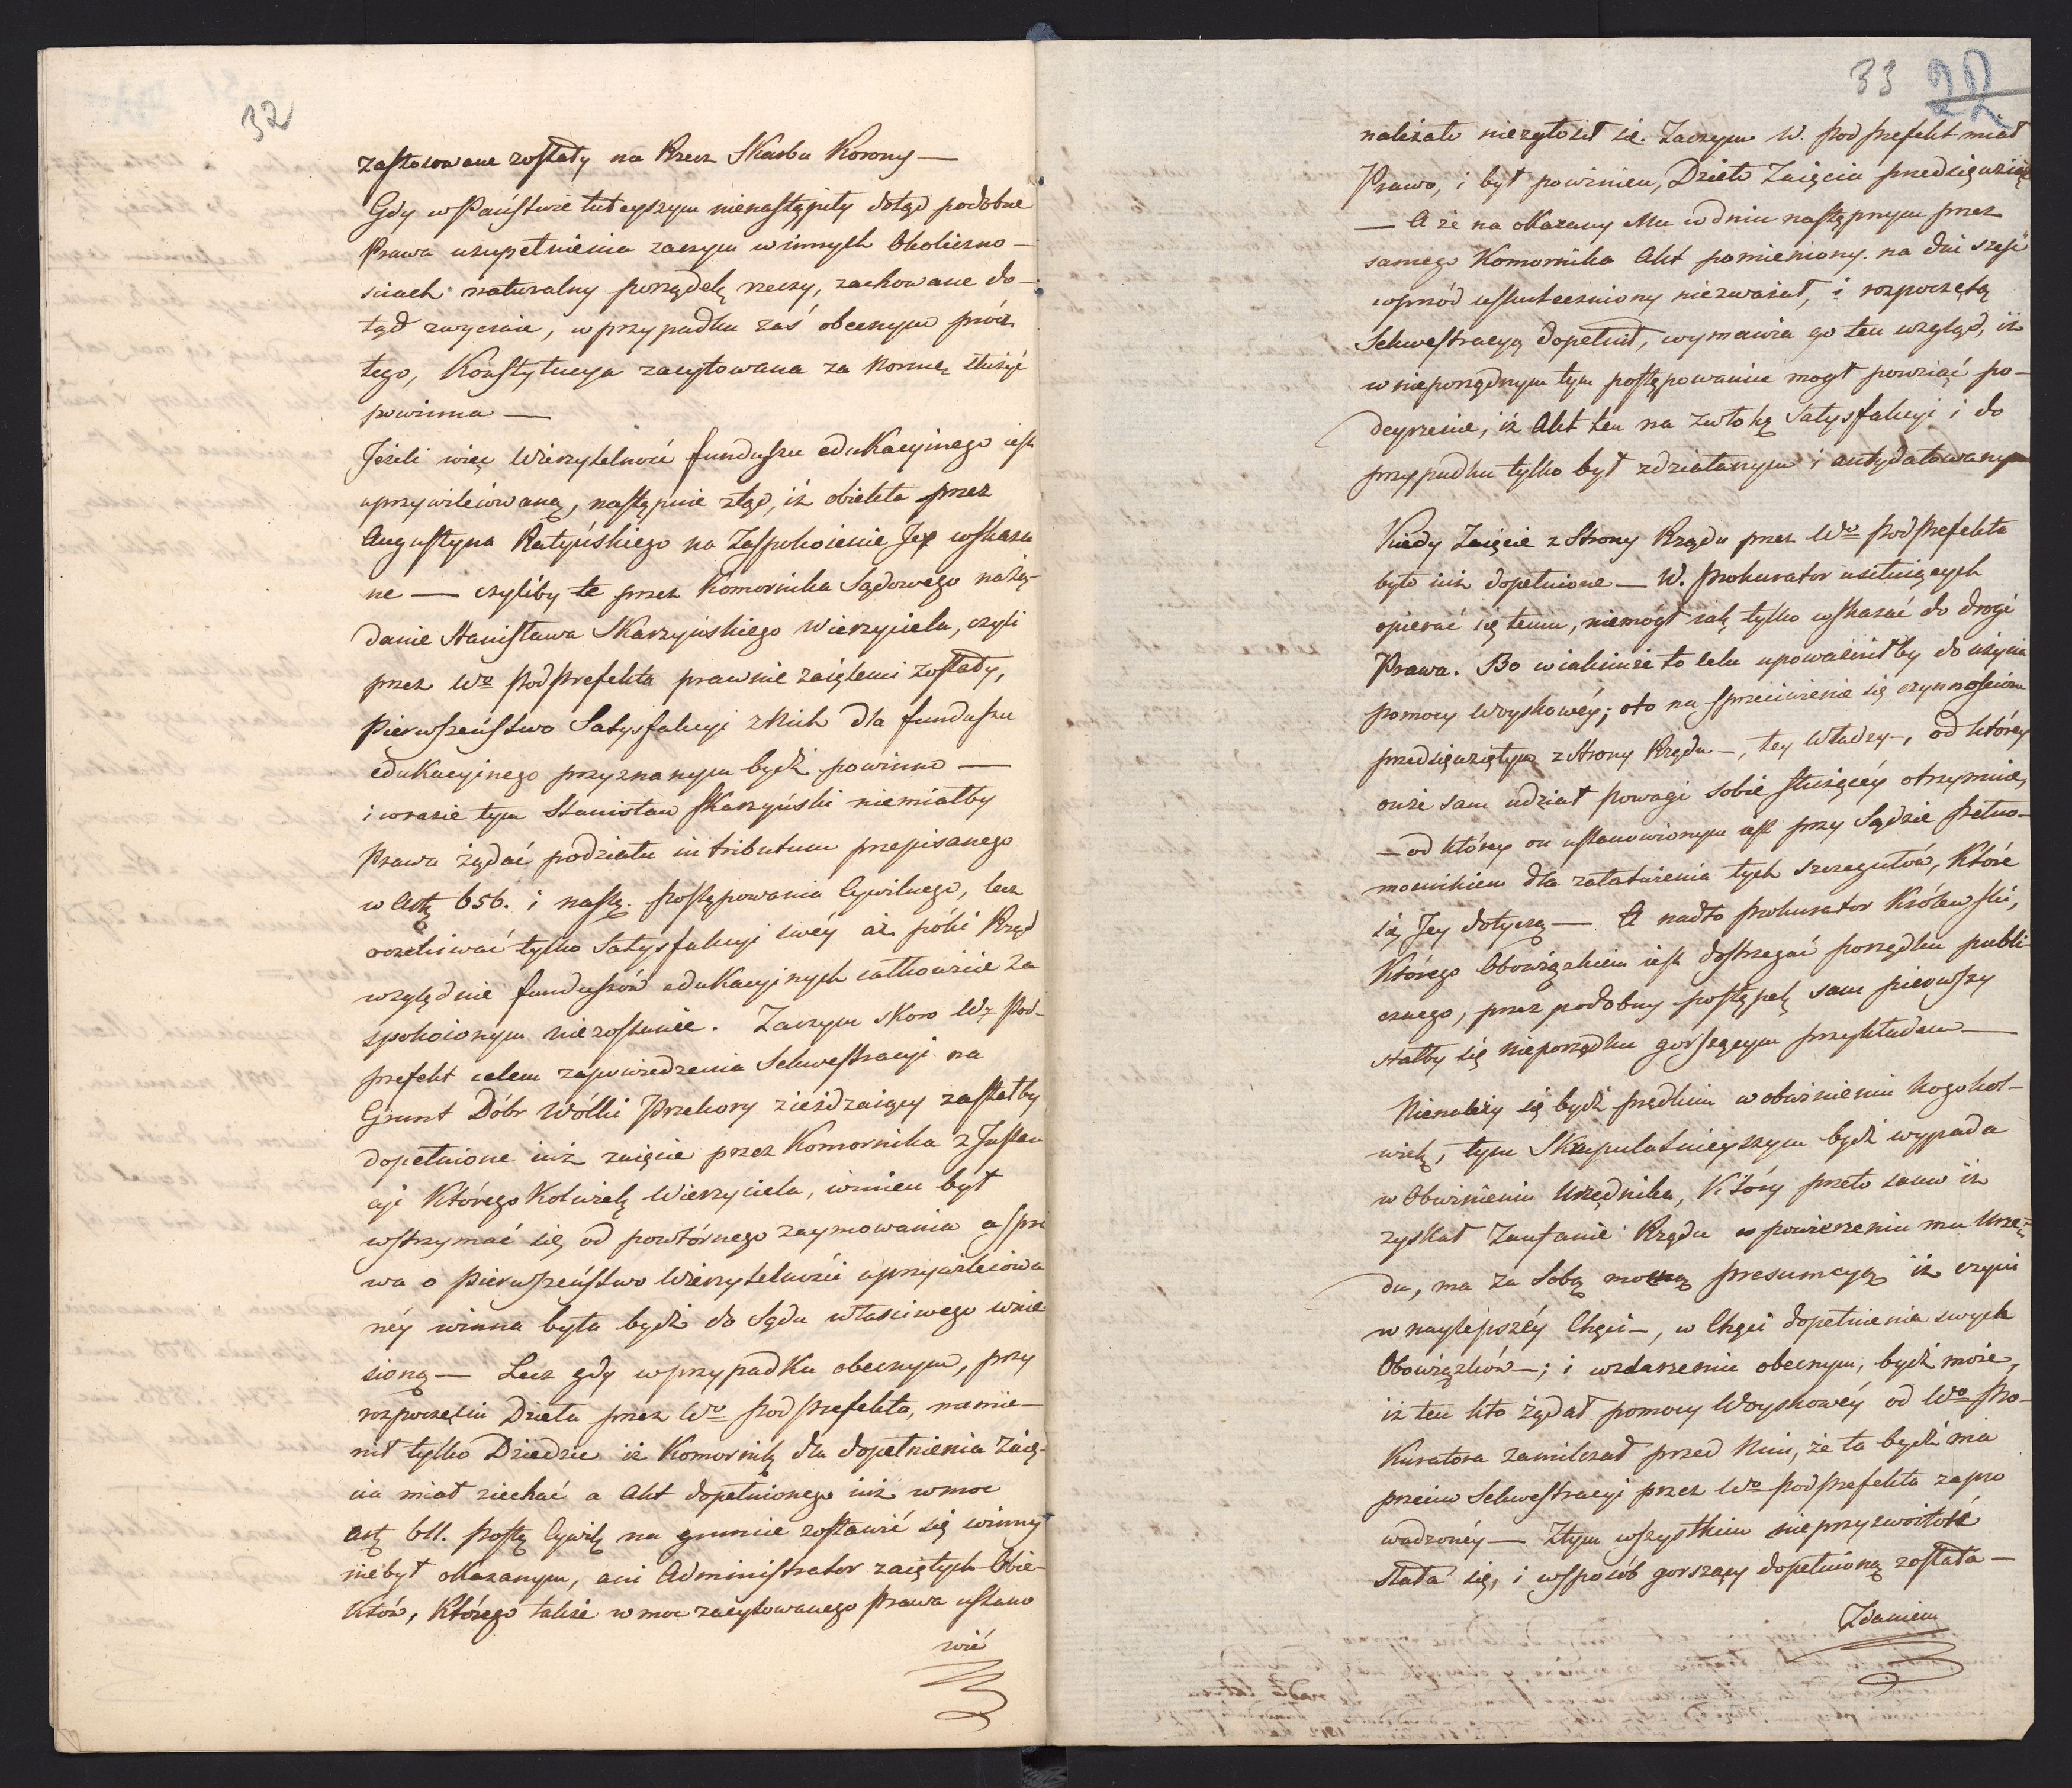 32
zastosowane zostały na Rzecz Skarbu Korony —
Gdy w Państwie tuteyszym nienastąpiły dotąd podobne
Prawa uzupełnienia zaczym w innych Okoliczno-
sciach naturalny porządek rzeczy, zachowane do-
tąd zwyczaie, w przypadku zaś obecnym prócz
tego, Konstytucya zacytowana za Normę służyć
powinna —
Jeżeli więc Wierzytelność funduszu edukacyinego iest
uprzywileiowaną, następuie ztąd, iż obiekta przez
Augustyna Ratyńskiego na Zaspokoienie Jey wskaza
ne — czyliby te przez Komornika Sądowego na żą-
danie Stanisława Skarzyńskiego Wierzyciela, czyli
przez Wo Podprefekta prawnie zaiętemi zostały,
Pierwszeństwo Satysfakcyi z Nich dla funduszu
edukacyinego przyznanym bydź powinno —
i w razie tym Stanisław Skarzyński niemiałby
Prawa żądać podziału in tributum przepisanego
w Artę 656. i nastę. Postępowania Cywilnego, lecz
oczekiwać tylko Satysfakcyi swéy aż póki Rząd
względnie funduszów edukacyinych całkowicie za
spokoionym niezostanie. Zaczym skoro Wy Pod-
prefekt celem zapowiedzenia Sekwestracyi na
Grunt Dóbr Wólki Przekory zieżdzaiący zastałby
dopełnione iuż zaięcie przez Komornika z Instan
cyi Którego Kolwiek Wierzyciela, winien był
wstrzymać się od powtórnego zaymowania a spra
wa o Pierwszeństwo Wierzytelności uprzywileiowa
néy winna była bydź do Sądu właściwego wnie
sioną — Lecz gdy w przypadku obecnym, przy
rozpoczęciu Dzieła przez Wo Podprefekta, namie-
nił tylko Dziedzic iż Komornik dla dopełnienia Zaię-
cia miał ziechać a Akt dopełnionego iuż w moc
Artę 611. Postę Cywilę na gruncie zostawić się winny
niebył okazanym, ani Administrator zaiętych Obie-
któw, Którego także w moc zacytowanego Prawa ustano
wić
33 22
należało niezgłosił się. Zaczym W. Podprefekt miał
Prawo, i był powinien, Dzieło Zaięcia przedsięwziąć
— A że na okazany Mu w dniu następnym przez
samego Komornika Akt pomieniony na dni sześć
wprzód uskuteczniony niezważał, i rozpoczętą
Sekwestracyą dopełnił, wymawia go ten wzgląd, iż
w nieporządnym tym postępowaniu mogł powziąć po-
deyrzenie, iż Akt ten na zwłokę Satysfakcyi i do
przypadku tylko był zdziałanym i antydatowanym
Kiedy Zaięcie z Strony Rządu przez Wo Podprefekta
było iuż dopełnione — W. Prokurator usiłuiących
opierać się temu, niemógł iak tylko wskazać do drogi
Prawa. Bo w iakimże to celu upoważniłby do użycia
pomocy Woyskowéy; oto na sprzeciwienie się czynnościom
przedsięwziętym z Strony Rządu —, tey Władzy —, od którey
onże sam udział powagi sobie służącéy otrzymuie,
— od którey on ustanowionym iest przy Sądzie Pełno-
mocnikiem dla załatwienia tych szczegułów, Które
się Jey dotyczą — A nadto Prokurator Królewski,
Którego Obowiązkiem iest dostrzegać porządku publi-
cznego, przez podobny postępek sam pierwszy
stałby się nieporządku gorszącym przykładem —
Nienależy się bydź prędkim w obwinieniu kogokol-
wiek, tym Skrupulatnieyszym bydź wypada
w Obwinieniu Urzędnika, Który przeto samo iż
zyskał Zaufanie Rządu w powierzeniu mu Urzę-
du, ma za Sobą mocną presumcyą iż czyni
w naylepszéy Chęci —, w Chęci dopełnienia swych
Obowiązków —; i w zdarzeniu obecnym, bydź może,
iż ten kto żądał pomocy Woyskowéy od Wo Pro-
Kuratora zamilczał przed Nim, że ta bydź ma
przeciw Sekwestracyi przez Wo Podprefekta zapro
wadzonéy — Ztym wszystkim nieprzyzwoitość
stała się, i w sposób gorszący dopełnioną została —
Zdaniem